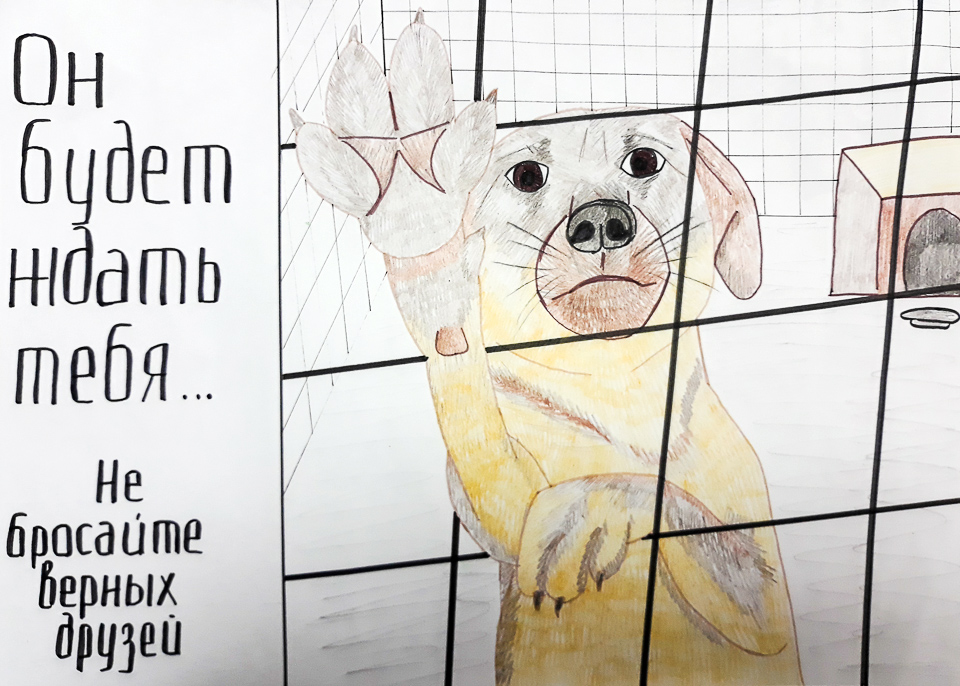 Он
будет
ждать
тебя...
Не
бросайте
верных
друзей